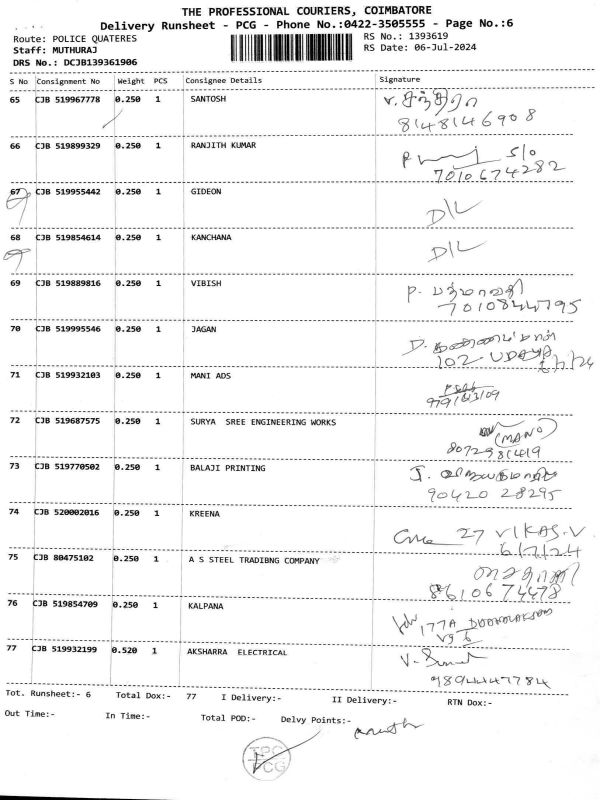 THE PROFESSIONAL COURIERS, COIMBATORE
Delivery Runsheet - PCG - Phone No.:0422-3505555 - Page No.:6
Route: POLICE QUATERES RS No.: 1393619
Staff: MUTHURAJ RS Date: 06-Jul-2024
DRS No.: DCJB139361906
S No Consignment No Weight PCS Consignee Details Signature
65 CJB 519967778 0.250 1 SANTOSH
8148146908
66 CJB 519899329 0.250 1 RANJITH KUMAR S/O
7010674282
67 CJB 519955442 0.250 1 GIDEON D/L
68 CJB 519854614 0.250 1 KANCHANA D/L
69 CJB 519889816 0.250 1 VIBISH P. பத்மாவதி
7010844795
70 CJB 519995546 0.250 1 JAGAN D.
102
71 CJB 519932103 0.250 1 MANI ADS
72 CJB 519687575 0.250 1 SURYA SREE ENGINEERING WORKS (MANO)
8072981419
73 CJB 519770502 0.250 1 BALAJI PRINTING J.
90420 28295
74 CJB 520002016 0.250 1 KREENA 27 VIKAS.V
6/7/24
75 CJB 80475102 0.250 1 A S STEEL TRADIBNG COMPANY
8610674478
76 CJB 519854709 0.250 1 KALPANA 177A
77 CJB 519932199 0.520 1 AKSHARRA ELECTRICAL
9894447784
Tot. Runsheet:- 6 Total Dox:- 77 I Delivery:- II Delivery:- RTN Dox:-
Out Time:- In Time:- Total POD:- Delvy Points:-
TPC
PCG